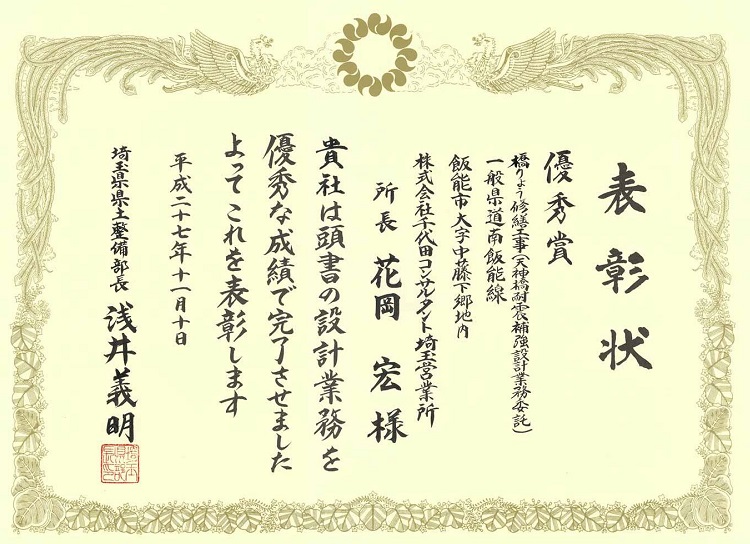 表彰状
優秀賞
橋りょう修繕工事(天神橋耐震補強設計業務委託)
一般県道南飯能線
飯能市大字中藤下郷地内
株式会社千代田コンサルタント埼玉営業所
所長 花岡 宏 様
貴社は頭書の設計業務を
優秀な成績で完了させました
よってこれを表彰します
平成二十七年十一月十日
埼玉県県土整備部長 浅井義明